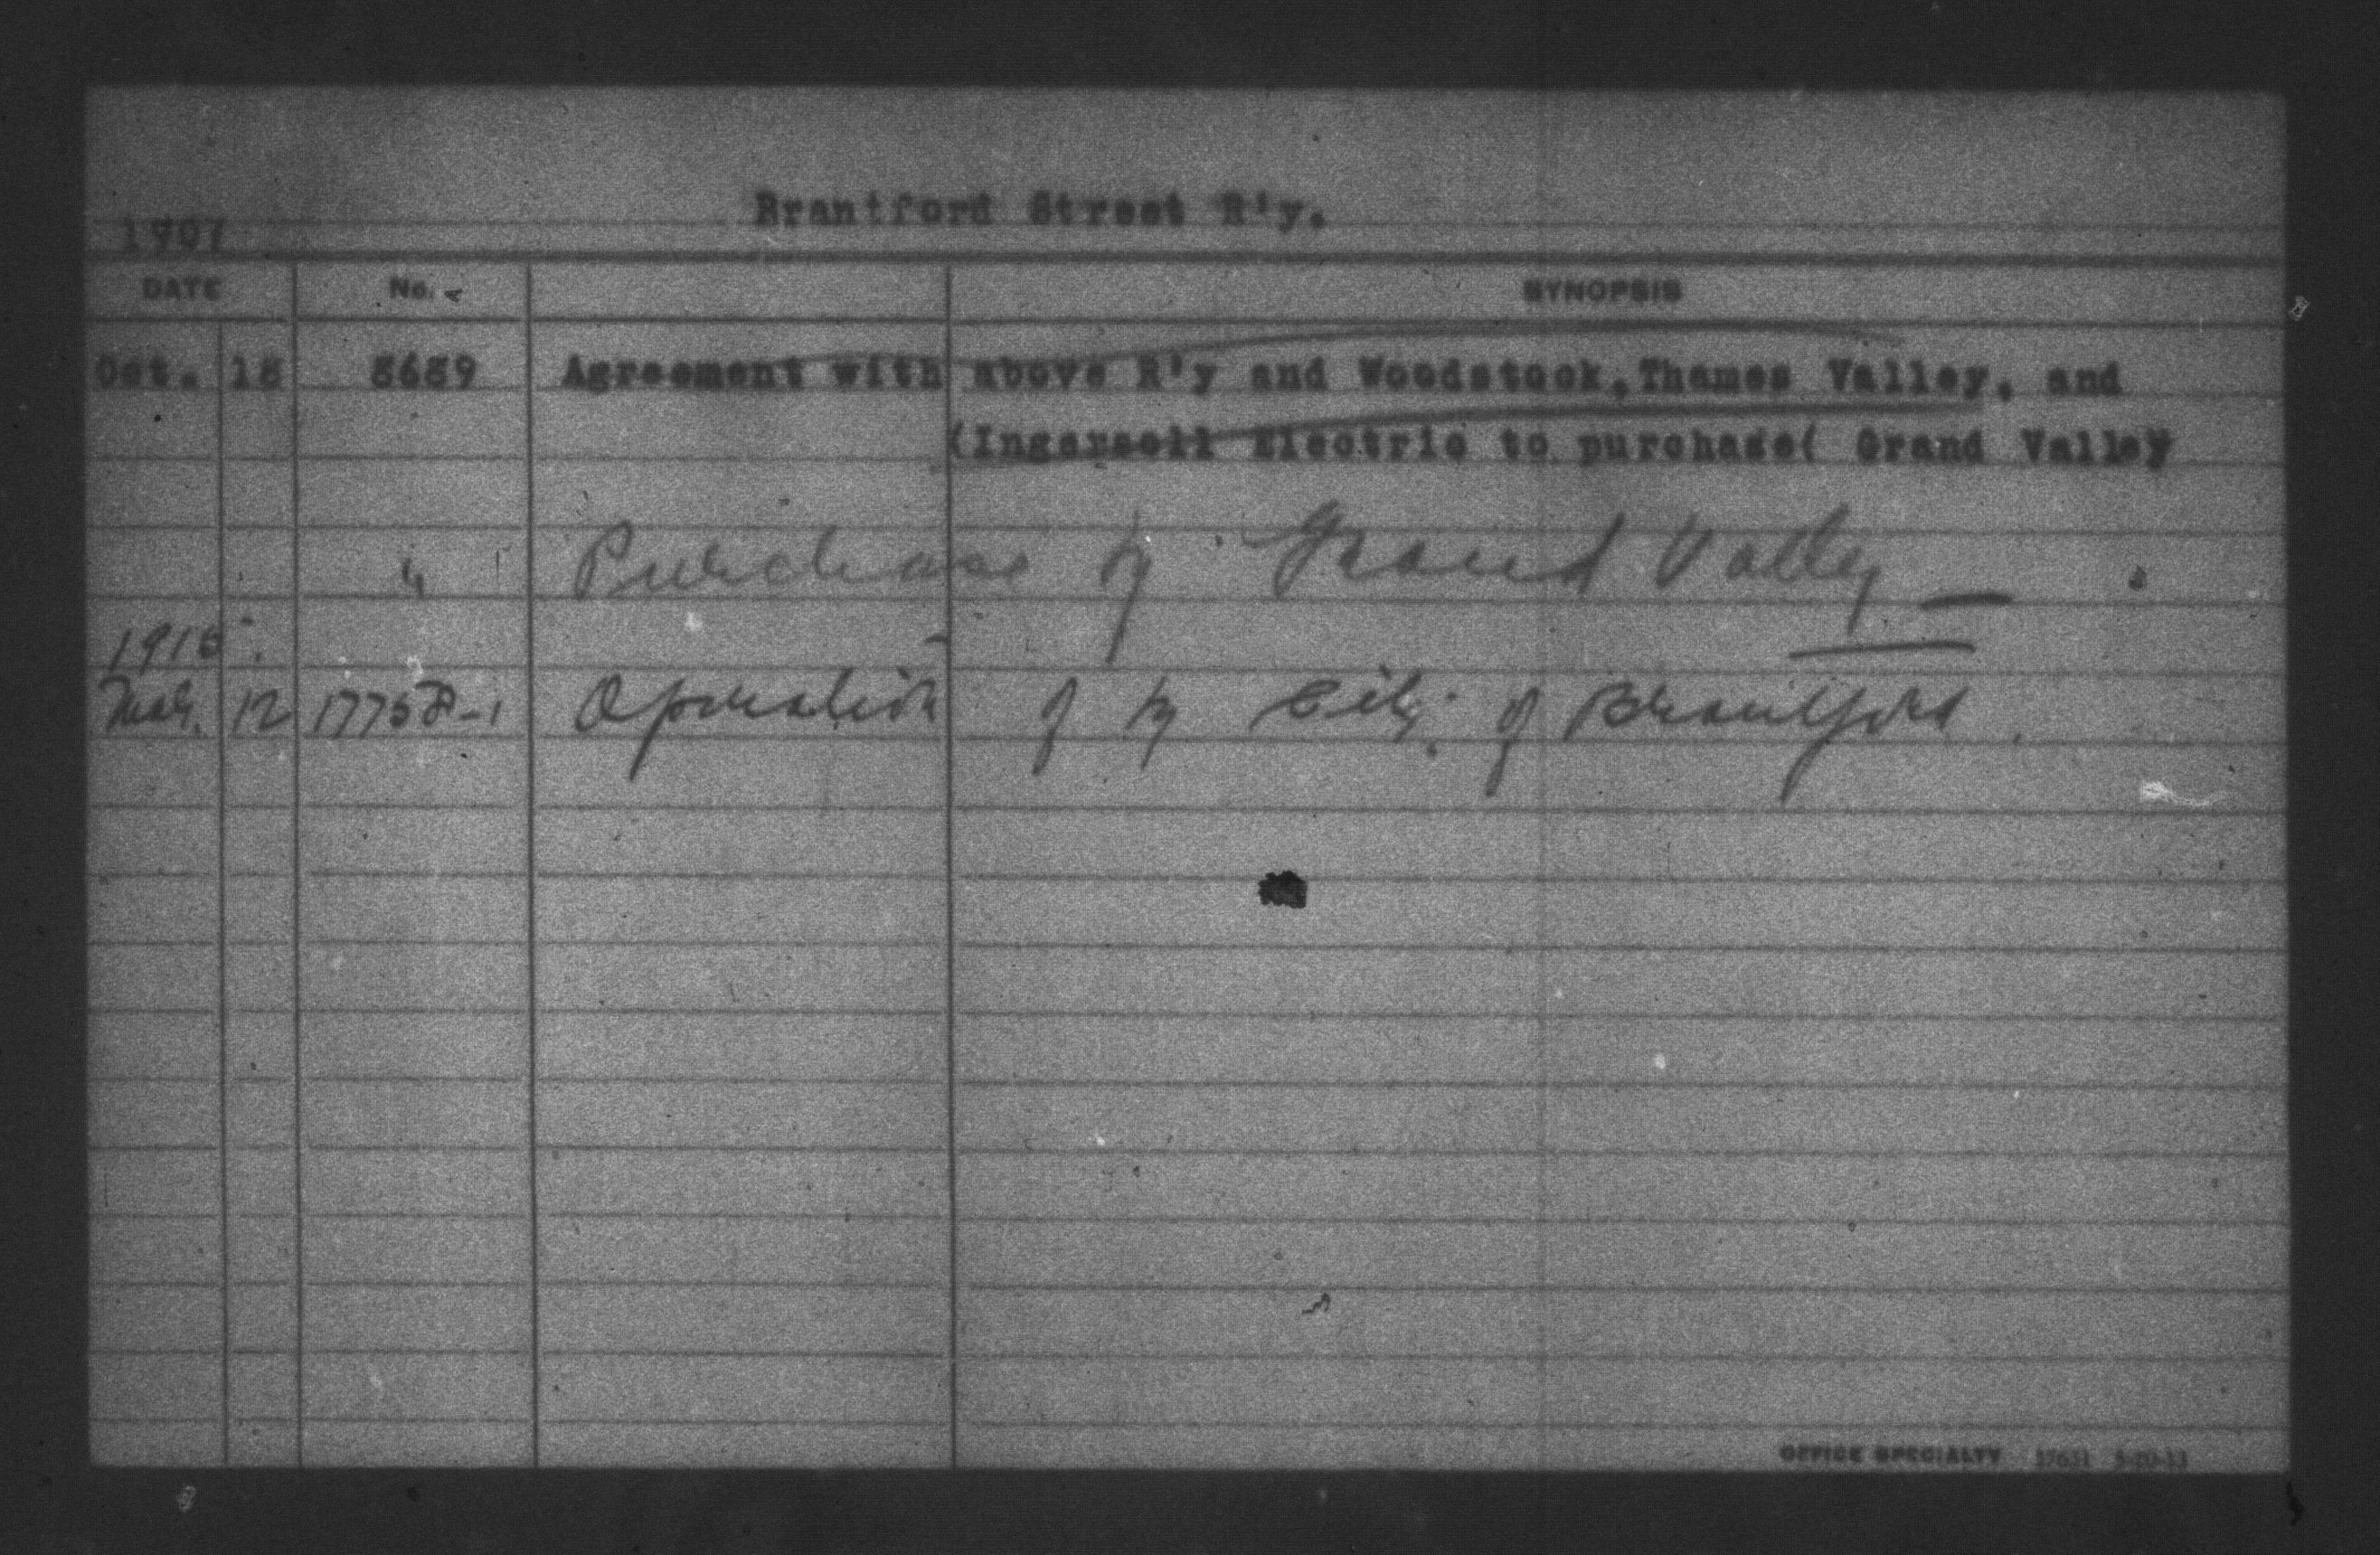 Brantford Street R'y.
1901
DATE No. SYNOPSIS
Oct. 18 8689 Agreement with above R'y and Woodstock,Thames Valley, and
(Ingersoll Electric to purchase( Grand Valley
" Purchase by Grand Valley —
1915.
Mch. 12 17758-1 Operation of by City of Brantford.
OFFICE SPECIALTY 5-20-13